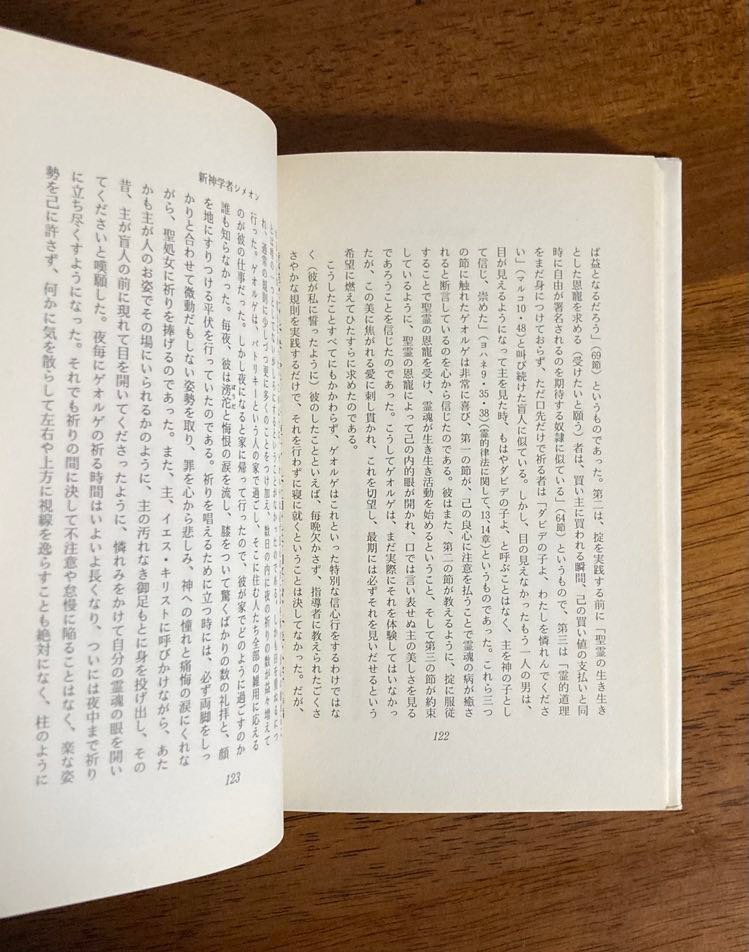 ば益となるだろう」（69節）というものであった。第二は、掟を実践する前に「聖霊の生き生き
とした恩寵を求める（受けたいと願う）者は、買い主に買われる瞬間、己の買い値の支払いと同
時に自由が署名されるのを期待する奴隷に似ている」（64節）というもので、第三は「霊的道理
をまだ身につけておらず、ただ口先だけで祈る者は「ダビデの子よ、わたしを憐れんでくださ
い」（マルコ10・48）と叫び続けた盲人に似ている。しかし、目の見えなかったもう一人の男は、
目が見えるようになって主を見た時、もはやダビデの子よ、と呼ぶことはなく、主を神の子とし
て信じ、崇めた」（ヨハネ9・35・38（霊的律法に関して、13、14章）というものであった。これら三つ
の節に触れたゲオルゲは非常に喜び、第一の節が、己の良心に注意を払うことで霊魂の病が癒さ
れると断言しているのを心から信じたのである。彼はまた、第二の節が教えるように、掟に服従
することで聖霊の恩寵を受け、霊魂が生き生き活動を始めるということ、そして第三の節が約束
しているように、聖霊の恩寵によって己の内的眼が開かれ、口では言い表せぬ主の美しさを見る
であろうことを信じたのであった。こうしてゲオルゲは、まだ実際にそれを体験してはいなかっ
たが、この美に焦がれる愛に刺し貫かれ、これを切望し、最期には必ずそれを見いだせるという
希望に燃えてひたすらに求めたのである。
こうしたことすべてにもかかわらず、ゲオルゲはこれといった特別な信心行をするわけではな
く（彼が私に誓ったように）彼のしたことといえば、毎晩欠かさず、指導者に教えられたごくさ
さやかな規則を実践するだけで、それを行わずに寝に就くということは決してなかった。だが、
122
新神学者シメオン
行った。ゲオルゲは、パトリキーという人の家で過ごし、そこに住む人たち全部の雑用に応える
のが彼の仕事だった。しかし夜になると家に帰って行ったので、彼が家でどのように過ごすのか
誰も知らなかった。毎夜、彼は滂沱と悔恨の涙を流し、膝をついて驚くばかりの数の礼拝と、顔
を地にすりつける平伏を行っていたのである。祈りを唱えるために立つ時には、必ず両脚をしっ
かりと合わせて微動だもしない姿勢を取り、罪を心から悲しみ、神への憧れと痛悔の涙にくれな
がら、聖処女に祈りを捧げるのであった。また、主、イエス・キリストに呼びかけながら、あた
かも主が人のお姿でその場にいられるかのように、主の汚れなき御足もとに身を投げ出し、その
昔、主が盲人の前に現れて目を開いてくださったように、憐れみをかけて自分の霊魂の眼を開い
てくださいと嘆願した。夜毎にゲオルゲの祈る時間はいよいよ長くなり、ついには夜中まで祈り
に立ち尽くすようになった。それでも祈りの間に決して不注意や怠慢に陥ることはなく、楽な姿
勢を己に許さず、何かに気を散らして左右や上方に視線を逸らすことも絶対になく、柱のように
123